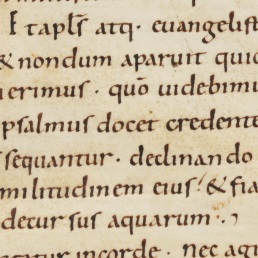 & apłs atq· euangelist
& nondum aparuit quid
erimus · quo uidebimu
psalmus docet credente
sequantur · declinando
militudinem eius & fia
decursus aquarum ·
incorde · nec ag